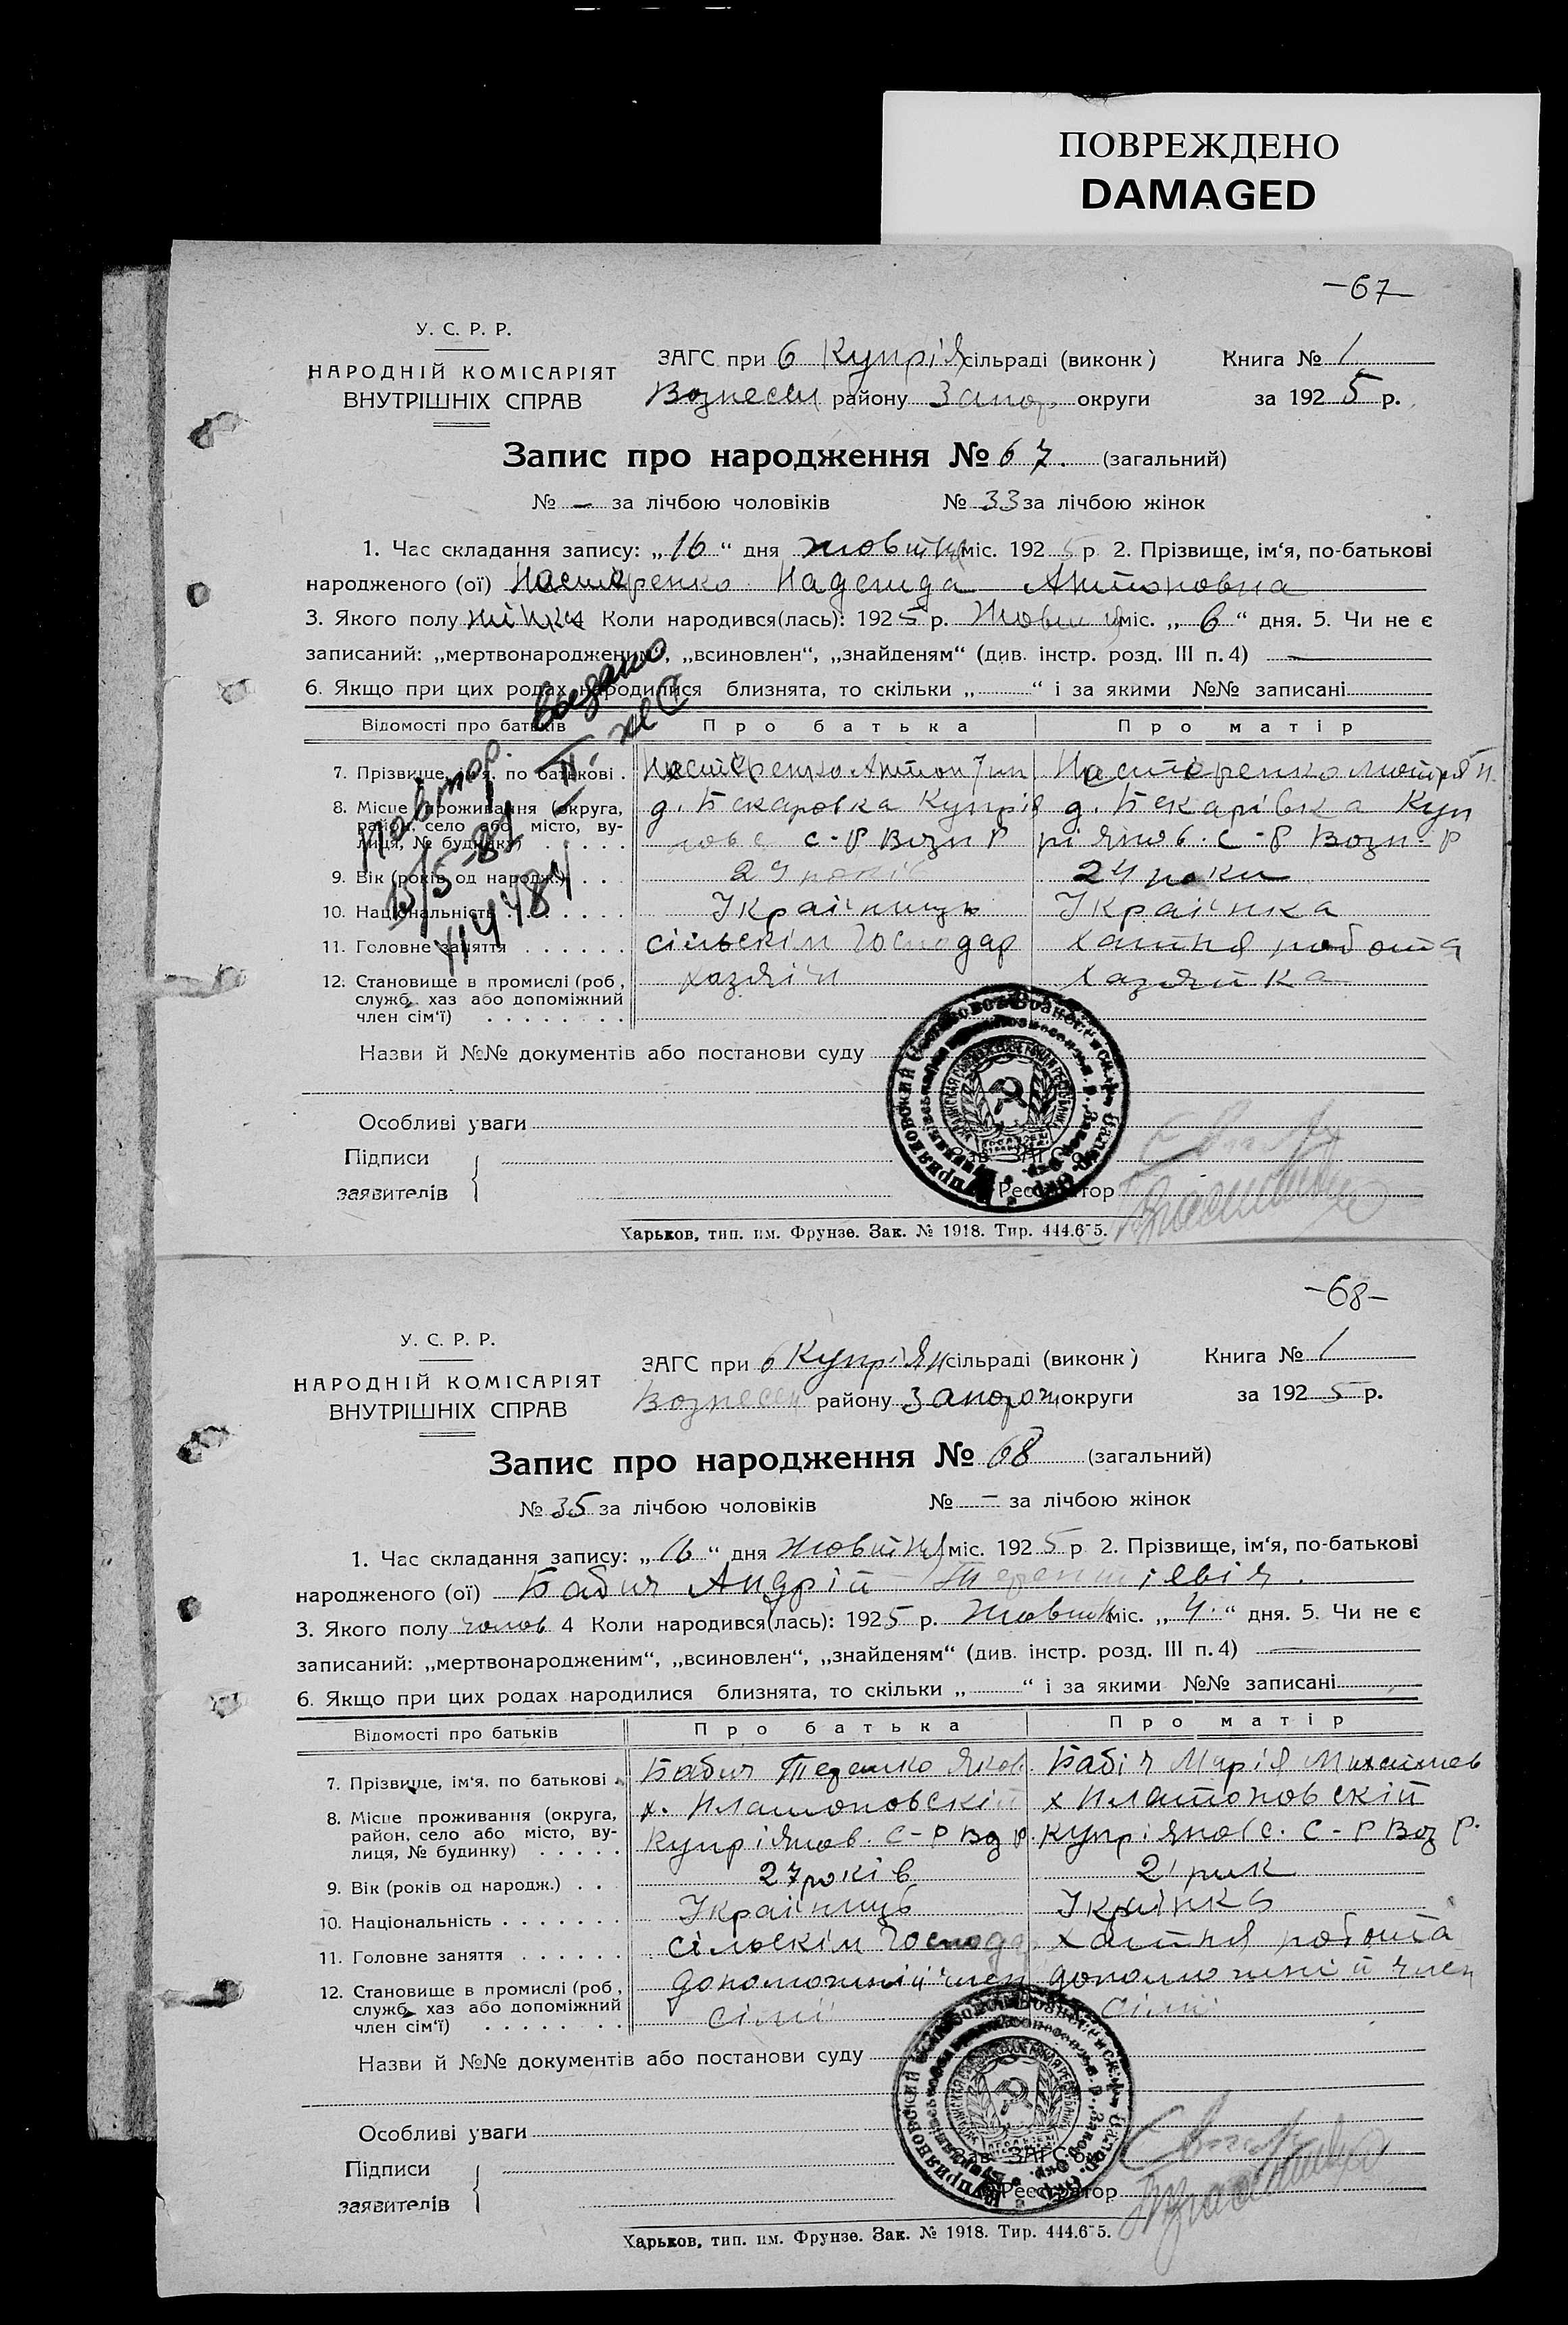 ПОВРЕЖДЕНО
DAMAGED
-67-
У. С. Р. Р.
НАРОДНІЙ КОМІСАРІЯТ
ВНУТРІШНІХ СПРАВ
ЗАГС при 6 Купрія сільраді (виконк) Книга № 1
Вознесен району Запор округи за 1925 р.
Запис про народження № 67. (загальний)
№ - за лічбою чоловіків № 33 за лічбою жінок
1. Час складання запису: „16“ дня жовтня міс. 1925 р 2. Прізвище, ім‘я, по-батькові
народженого (ої) Нестеренко Надежда Антоновна
3. Якого полу жіноч 4 Коли народився(лась): 1925 р. Жовтня міс. „6“ дня. 5. Чи не є
записаний: „мертвонародженим“, „всиновлен“, „знайденям“ (див. інстр. розд. III п. 4)
6. Якщо при цих родах народилися близнята, то скільки „ “ і за якими №№ записані
Відомості про батьків Про батька Про матір
7. Прізвище, ім‘я, по батькові . Нестеренко Антон Нестеренко Мотря
8. Місце проживання (округа, д. Бекаровка Купрія д. Бекарівка Куп
район, село або місто, ву-
лиця, № будинку) . . . . . С-Р Возн Р ріянов. С-Р Возн. Р
9. Вік (років од народж.) . . . 24 років 24 роки
10. Національність . . . . . . . Україниць Українка
11. Головне заняття . . . . . . сільскім господар хатня работа
12. Становище в промислі (роб, хазяін хазяйка
служб. хаз або допоміжний
член сім‘ї) . . . . . . . .
повтор. выдано
II. жС
15/5-84
Назви й №№ документів або постанови суду
Особливі уваги
Підписи
заявителів
Зав. ЗАГС‘ом
Реєстратор
Харьков, тип. им. Фрунзе. Зак. № 1918. Тир. 444.675.
-68-
У. С. Р. Р.
НАРОДНІЙ КОМІСАРІЯТ
ВНУТРІШНІХ СПРАВ
ЗАГС при 6 Купріян сільраді (виконк) Книга № 1
Вознесен району Запорож округи за 1925 р.
Запис про народження № 68 (загальний)
№ 35 за лічбою чоловіків № - за лічбою жінок
1. Час складання запису: „16“ дня жовтня міс. 1925 р 2. Прізвище, ім‘я, по-батькові
народженого (ої) Бабич Андрій Терентіевіч.
3. Якого полу чолов 4 Коли народився(лась): 1925 р. Жовтн міс. „4.“ дня. 5. Чи не є
записаний: „мертвонародженим“, „всиновлен“, „знайденям“ (див. інстр. розд. III п. 4)
6. Якщо при цих родах народилися близнята, то скільки „ “ і за якими №№ записані
Відомості про батьків Про батька Про матір
7. Прізвище, ім‘я, по батькові . Бабич Терешко Яков. Бабіч Марія Михайлов
8. Місце проживання (округа, х. Платоновскій х Платоновскій
район, село або місто, ву- Купріянов. С-Р Воз Р. Купріянов с. С-Р Воз Р.
лиця, № будинку) . . . . .
9. Вік (років од народж.) . . 27 років 21 рик
10. Національність . . . . . . . Україниць Українка
11. Головне заняття . . . . . . сільскім Господа хатня работа
12. Становище в промислі (роб, допоможній член допоможній член
служб. хаз або допоміжний сімї сімї
член сім‘ї) . . . . . . . .
Назви й №№ документів або постанови суду
Особливі уваги
Підписи
заявителів
Зав. ЗАГС‘ом
Реєстратор
Харьков, тип. им. Фрунзе. Зак. № 1918. Тир. 444.675.